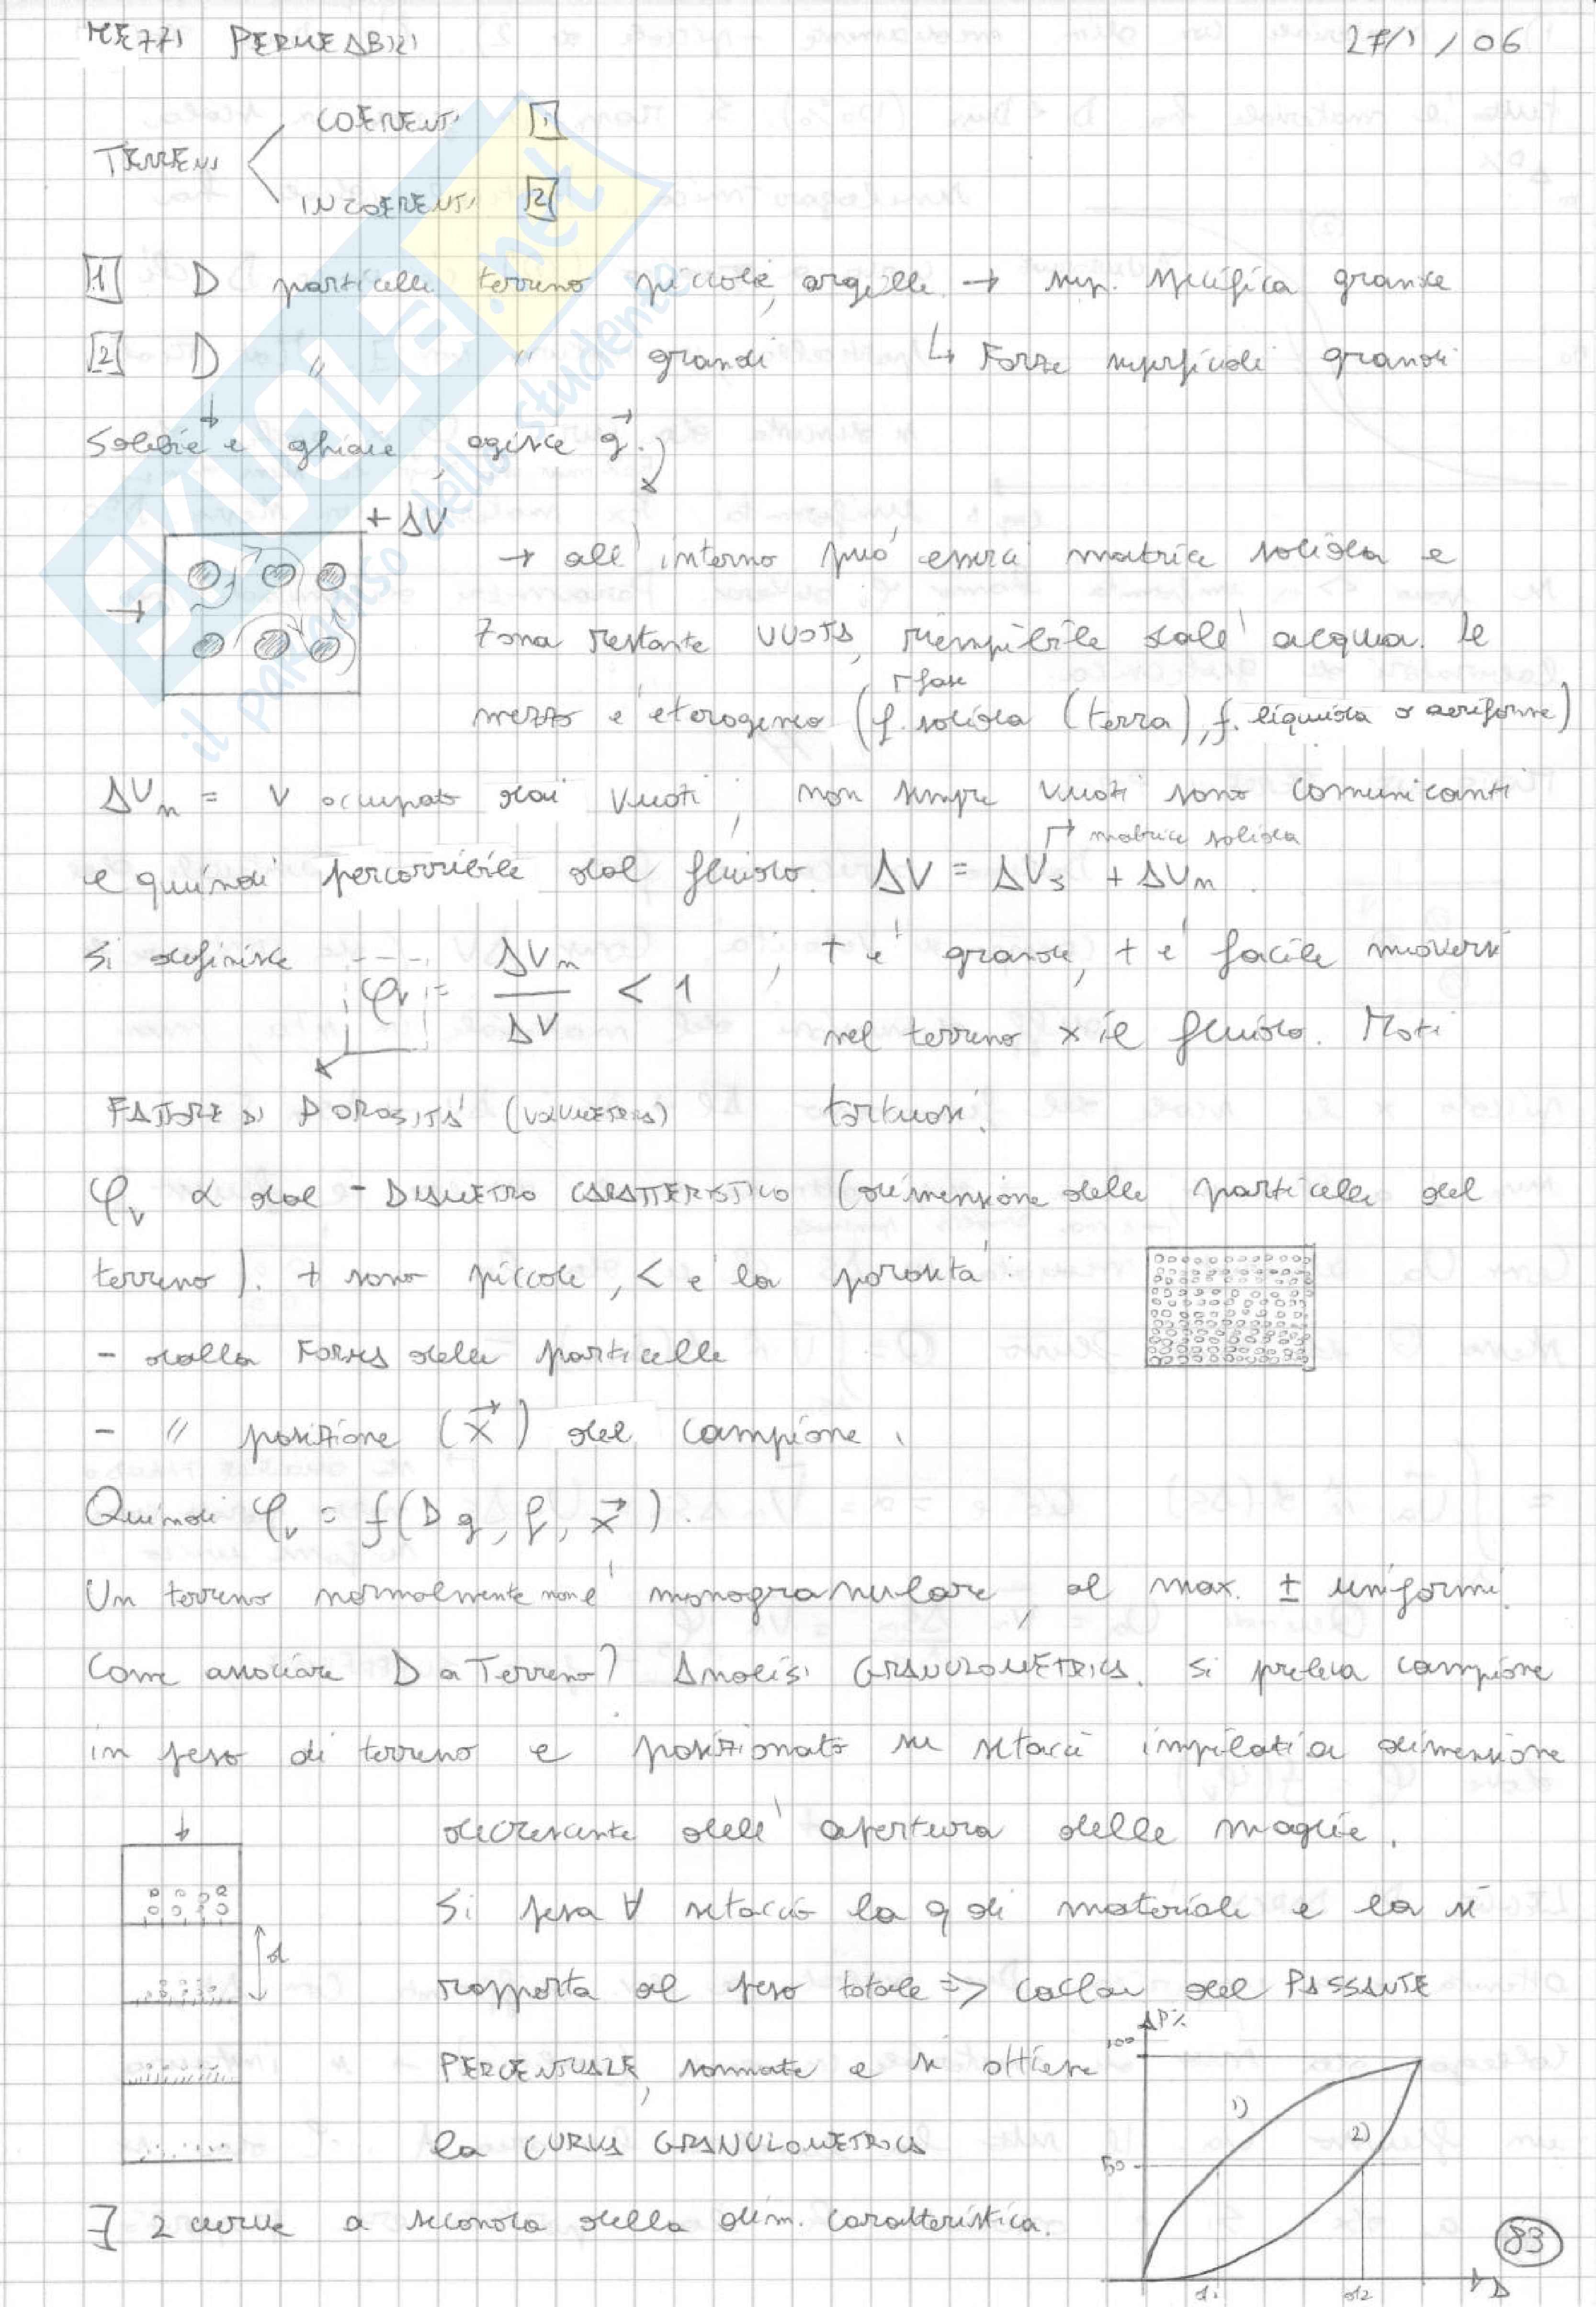 MEZZI PERMEABILI 27/1/06
TERRENI
COERENTI [1]
INCOERENTI [2]
[1] D particelle terreno piccole, argille → sup. specifica grande
[2] D " " grandi ↳ Forze superficiali grandi
↓
Sabbie e ghiaie, agisce g⃗.
+ ΔV
→ all'interno può esserci matrice solida e
zona restante VUOTA, riempibile dall'acqua. Il
fase
mezzo è eterogeneo (f. solida (terra), f. liquida o aeriforme)
ΔVn = V occupato dai vuoti, non sempre vuoti sono comunicanti
matrice solida
e quindi percorribile dal fluido. ΔV = ΔVs + ΔVn.
Si definisce φv = ΔVn / ΔV < 1 ; + è grande, + è facile muoversi
nel terreno x il fluido. Moti
FATTORE DI POROSITÀ (VOLUMETRICA) tortuosi.
φv α dal - DIAMETRO CARATTERISTICO (dimensione delle particelle del
terreno). + sono piccole, < è la porosità.
- dalla FORMA delle particelle
- " posizione (x⃗) del campione.
Quindi φv = f(Dg, f, x⃗).
Un terreno normalmente non è monogranulare, al max. ± uniformi.
Come associare D a Terreno? Analisi GRANULOMETRICA. Si preleva campione
in peso di terreno e posizionato su setacci impilati a dimensione
decrescente dell'apertura delle maglie.
Si pesa ∀ setaccio la q di materiale e la si
d
rapporta al peso totale => calcolo del PASSANTE
PERCENTUALE, sommate e si ottiene
la CURVA GRANULOMETRICA
∃ 2 curve a seconda della dim. caratteristica.
P%
100
1)
2)
50
d1 d2 D
83
SKUOLA.net
il paradiso dello studente